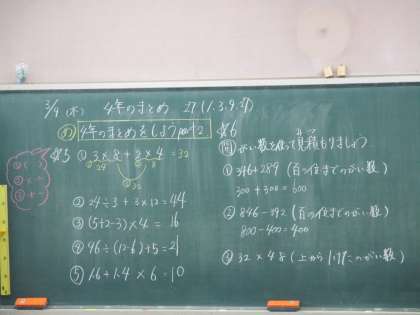 3/9 (木) 4年のまとめ
め 4年のまとめをしよう part2
① ( )
② × ÷
③ + -
☆5 ① 3×8+2×4=32
24
32
② 24÷3+12×3=44
③ (5+2-3)×4=16
④ 96÷(12-6)+5=21
⑤ 1.6+1.4×6=10
☆6
問 がい数を使って見積もりましょう
① 346+289 (百の位までのがい数)
300+300=600
② 846-492 (百の位までのがい数)
800-400=400
③ 32×48 (上から1けたのがい数)